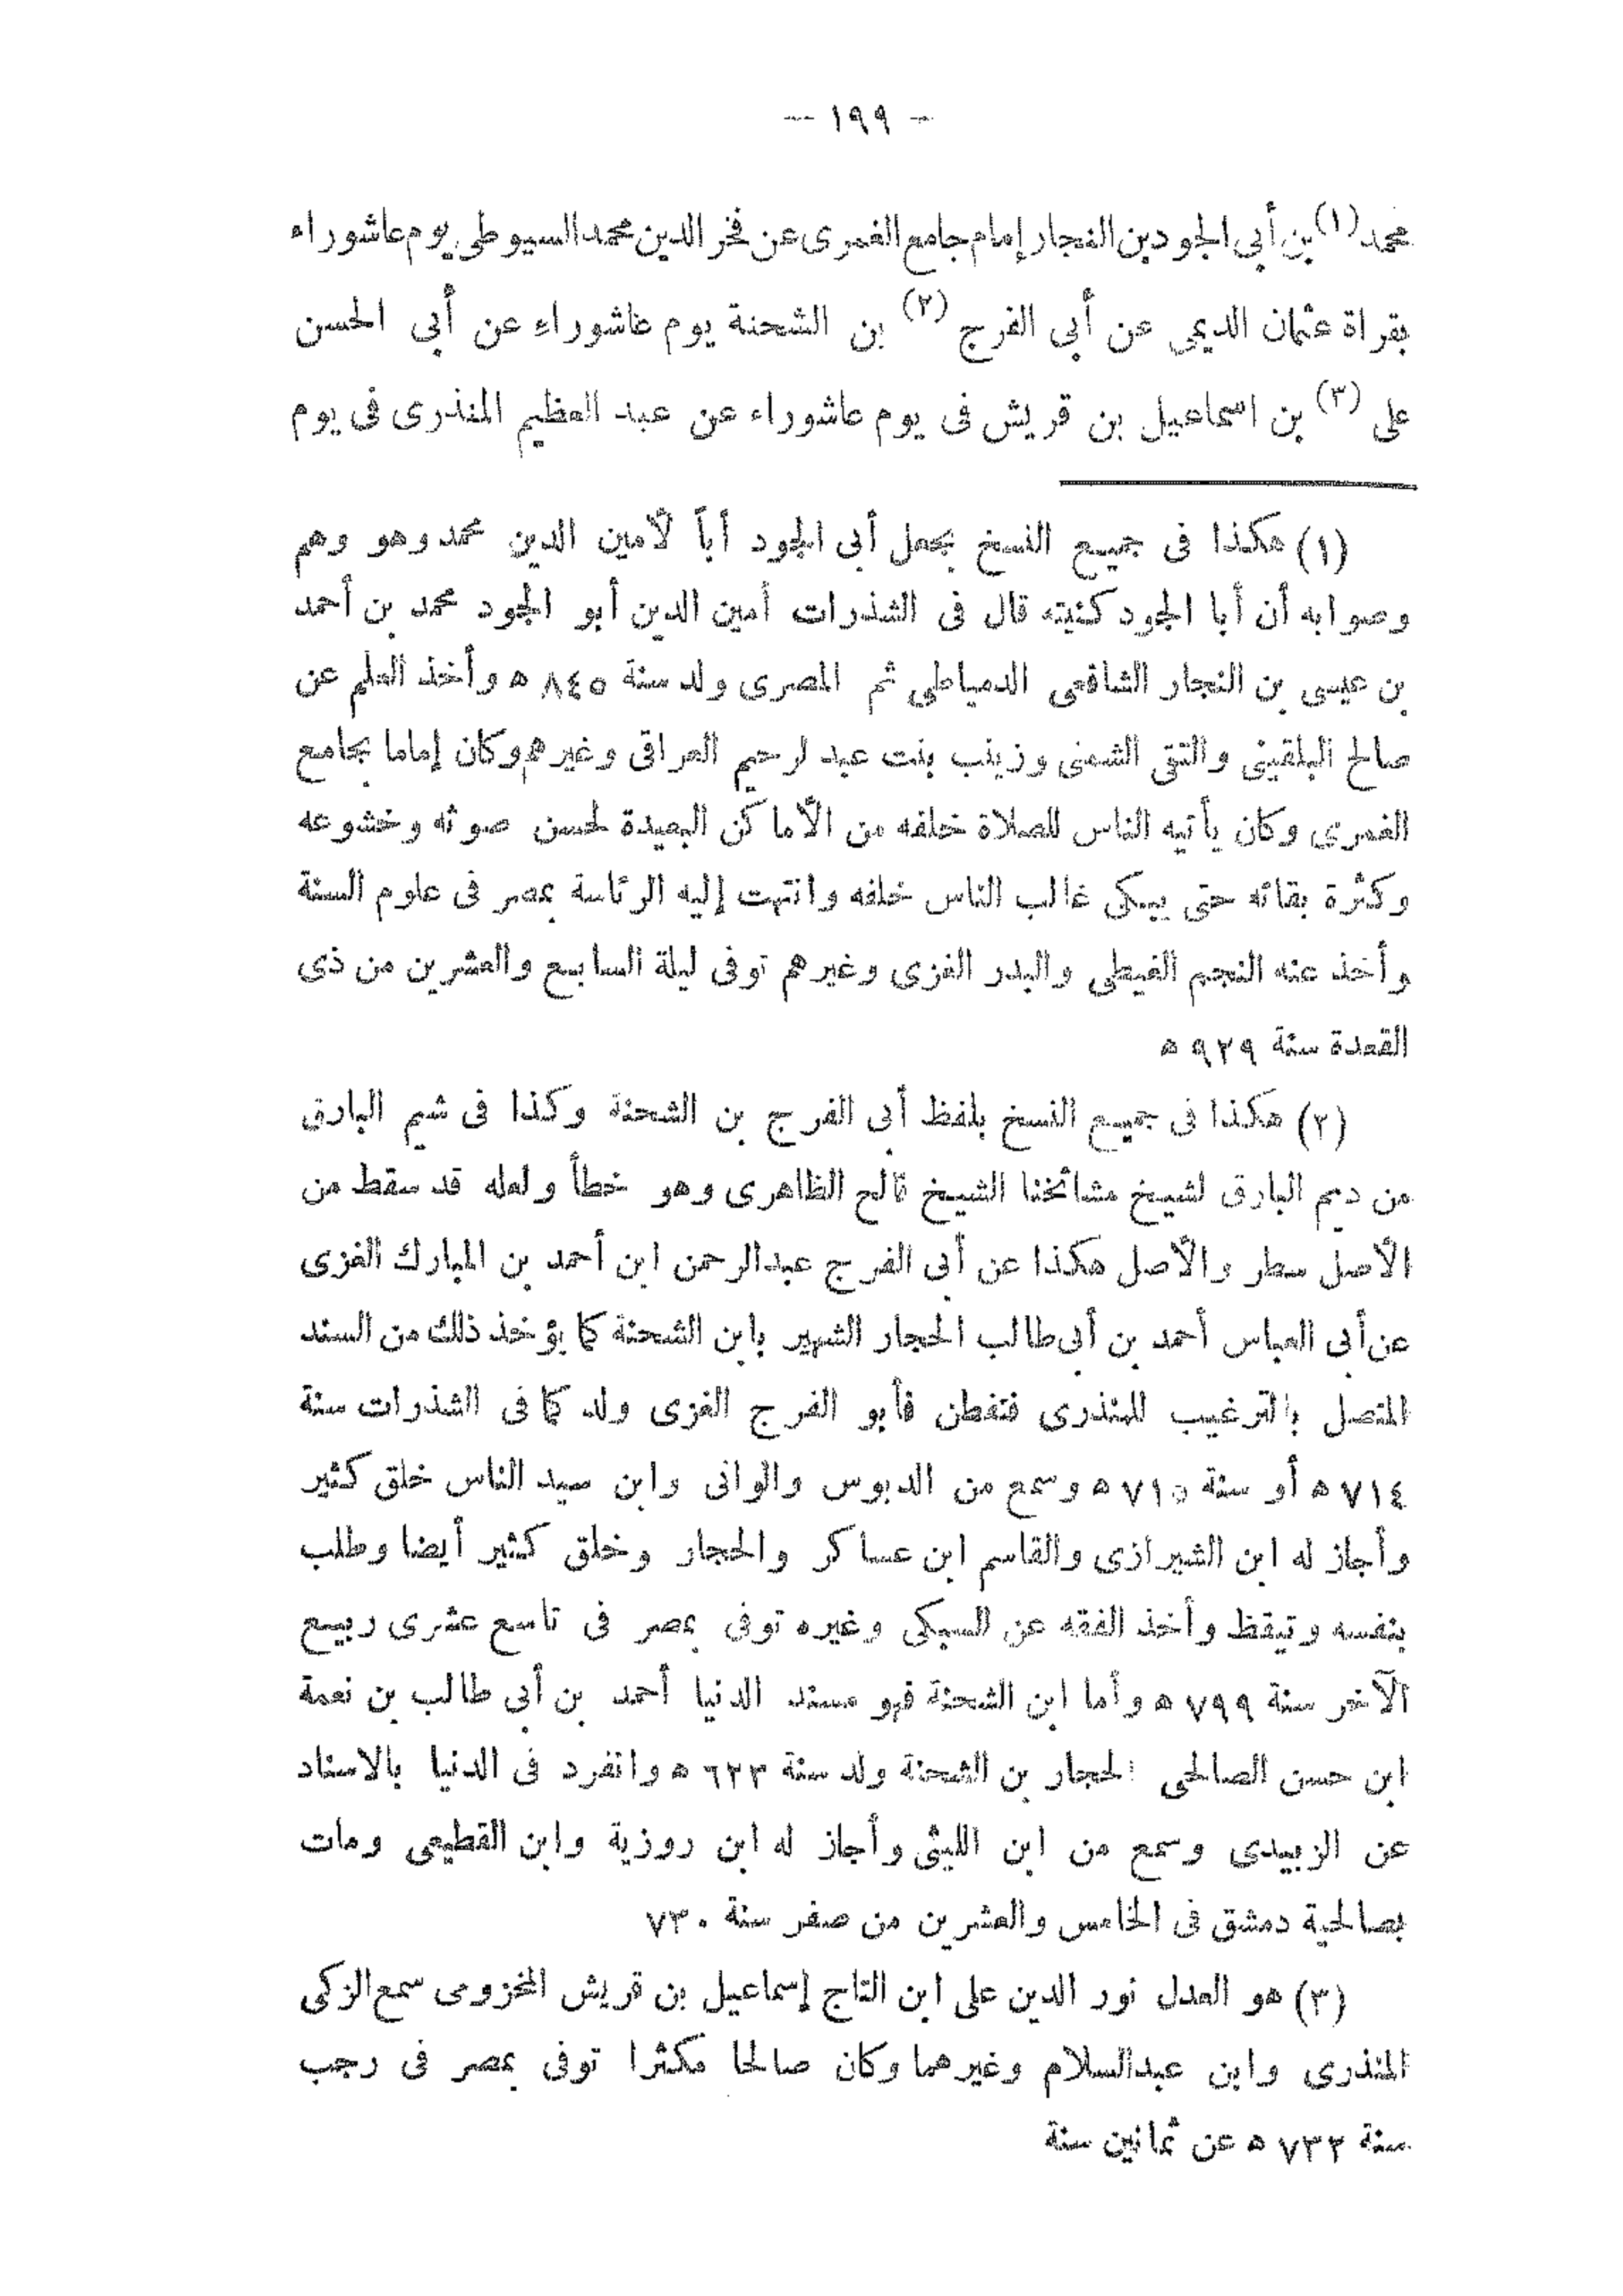 - ١٩٩ -
محمد (١) بن أبى الجود بن النجار إمام جامع الغمرى عن فخر الدين محمد السيوطى يوم عاشوراء
بقراة عثمان الديمى عن أبى الفرج (٢) بن الشحنة يوم عاشوراء عن أبى الحسن
على (٣) بن اسماعيل بن قريش فى يوم عاشوراء عن عبد العظيم المنذرى فى يوم
(١) هكذا فى جميع النسخ بجعل أبى الجود أباً لأمين الدين محمد وهو وهم
وصوابه أن أبا الجود كنيته قال فى الشذرات أمين الدين أبو الجود محمد بن أحمد
بن عيسى بن النجار الشافعى الدمياطى ثم المصرى ولد سنة ٨٤٥ ه وأخذ العلم عن
صالح البلقينى والتقى الشمنى وزينب بنت عبد لرحيم العراقى وغيرهم وكان إماما بجامع
الغمرى وكان يأتيه الناس للصلاة خلفه من الأماكن البعيدة لحسن صوته وخشوعه
وكثرة بقائه حتى يبكى غالب الناس خلفه وانتهت إليه الرئاسة بمصر فى علوم السنة
وأخذ عنه النجم الغيطى والبدر الغزى وغيرهم توفى ليلة السابع والعشرين من ذى
القعدة سنة ٩٢٩ ه
(٢) هكذا فى جميع النسخ بلفظ أبى الفرج بن الشحنة وكذا فى شيم البارق
من ديم البارق لشيخ مشائخنا الشيخ فالح الظاهرى وهو خطأ ولعله قد سقط من
الأصل سطر والأصل هكذا عن أبى الفرج عبدالرحمن ابن أحمد بن المبارك الغزى
عن أبى العباس أحمد بن أبى طالب الحجار الشهير بابن الشحنة كما يؤخذ ذلك من السند
المتصل بالترغيب للمنذرى فتفطن فأبو الفرج الغزى ولد كما فى الشذرات سنة
٧١٤ ه أو سنة ٧١٥ ه وسمع من الدبوس والوانى وابن سيد الناس خلق كثير
وأجاز له ابن الشيرازى والقاسم ابن عساكر والحجار وخلق كثير أيضا وطلب
بنفسه وتيقظ وأخذ الفقه عن السبكى وغيره توفى بمصر فى تاسع عشرى ربيع
الآخر سنة ٧٩٩ ه وأما ابن الشحنة فهو مسند الدنيا أحمد بن أبى طالب بن نعمة
ابن حسن الصالحى الحجار بن الشحنة ولد سنة ٦٢٣ ه وانفرد فى الدنيا بالاسناد
عن الزبيدى وسمع من ابن الليثى وأجاز له ابن روزبة وابن القطيعى ومات
بصالحية دمشق فى الخامس والعشرين من صفر سنة ٧٣٠
(٣) هو العدل نور الدين على ابن التاج إسماعيل بن قريش المخزومى سمع الزكى
المنذرى وابن عبدالسلام وغيرهما وكان صالحا مكثرا توفى بمصر فى رجب
سنة ٧٣٢ ه عن ثمانين سنة